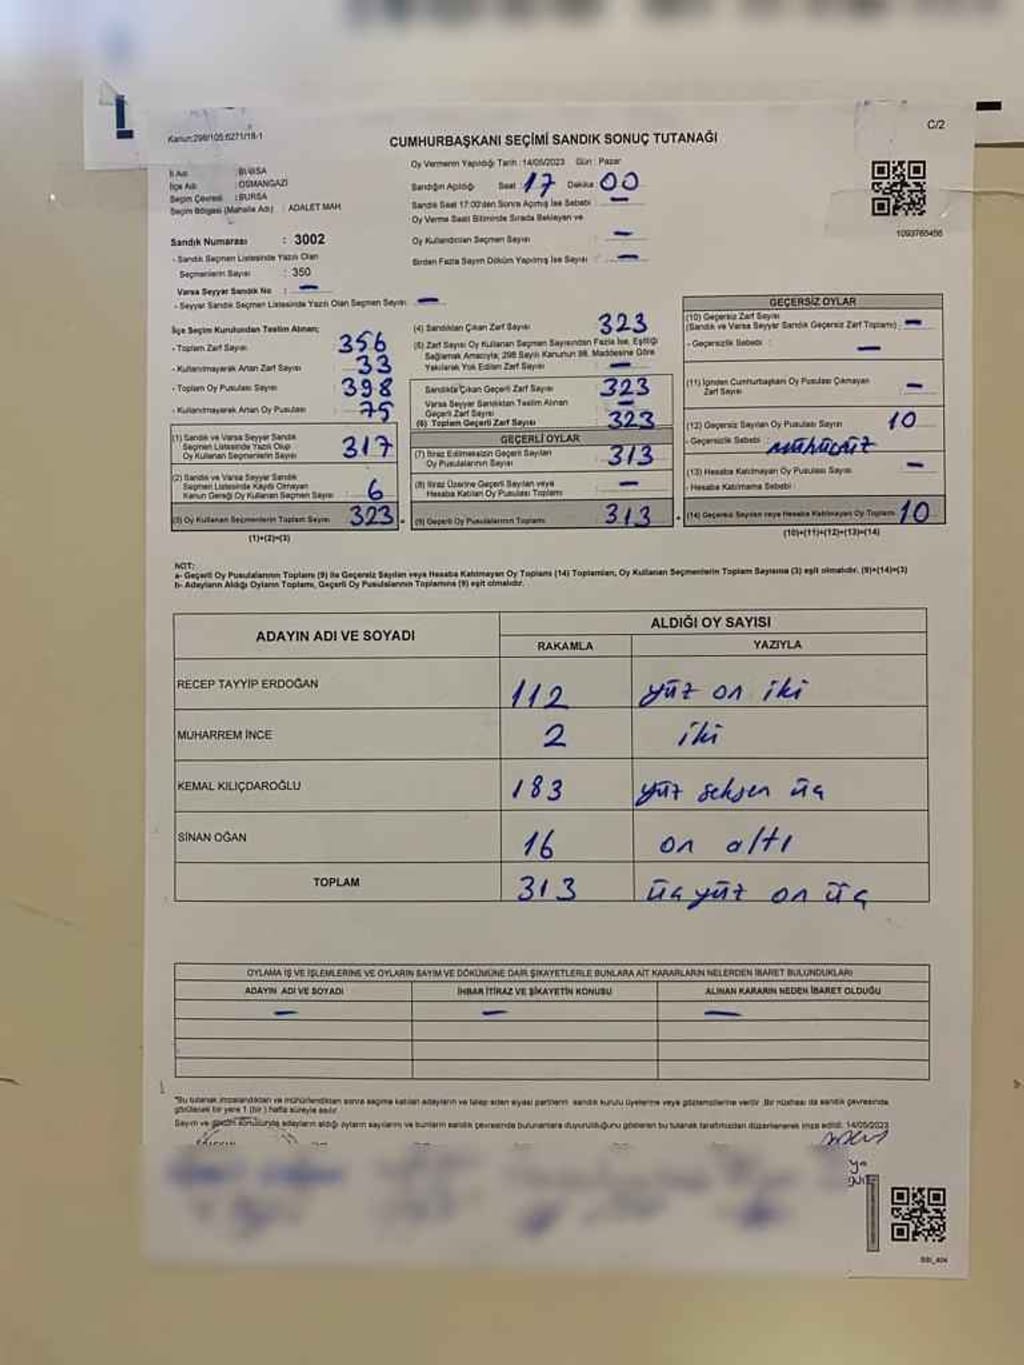 Kanun:298/105;6271/18-1
C/2
CUMHURBAŞKANI SEÇİMİ SANDIK SONUÇ TUTANAĞI
İl Adı : BURSA
İlçe Adı : OSMANGAZİ
Seçim Çevresi : BURSA
Seçim Bölgesi (Mahalle Adı) : ADALET MAH.
Sandık Numarası : 3002
- Sandık Seçmen Listesinde Yazılı Olan
Seçmenlerin Sayısı : 350
Varsa Seyyar Sandık No : —
- Seyyar Sandık Seçmen Listesinde Yazılı Olan Seçmen Sayısı : —
Oy Vermenin Yapıldığı Tarih : 14/05/2023 Gün : Pazar
Sandığın Açıldığı Saat 17 Dakika : 00
Sandık Saat 17:00'den Sonra Açılmış İse Sebebi : —
Oy Verme Saati Bitiminde Sırada Bekleyen ve
Oy Kullandırılan Seçmen Sayısı : —
Birden Fazla Sayım Döküm Yapılmış İse Sayısı : —
1093765456
İlçe Seçim Kurulundan Teslim Alınan;
- Toplam Zarf Sayısı 356
- Kullanılmayarak Artan Zarf Sayısı 33
- Toplam Oy Pusulası Sayısı 398
- Kullanılmayarak Artan Oy Pusulası 75
(1) Sandık ve Varsa Seyyar Sandık
Seçmen Listesinde Yazılı Olup
Oy Kullanan Seçmenlerin Sayısı 317
(2) Sandık ve Varsa Seyyar Sandık
Seçmen Listesinde Kaydı Olmayan
Kanun Gereği Oy Kullanan Seçmen Sayısı 6
(3) Oy Kullanan Seçmenlerin Toplam Sayısı 323
(1)+(2)=(3)
(4) Sandıktan Çıkan Zarf Sayısı 323
(5) Zarf Sayısı Oy Kullanan Seçmen Sayısından Fazla İse, Eşitliği
Sağlamak Amacıyla; 298 Sayılı Kanunun 98. Maddesine Göre
Yakılarak Yok Edilen Zarf Sayısı —
Sandıkta Çıkan Geçerli Zarf Sayısı 323
Varsa Seyyar Sandıktan Teslim Alınan
Geçerli Zarf Sayısı —
(6) Toplam Geçerli Zarf Sayısı 323
GEÇERLİ OYLAR
(7) İtiraz Edilmeksizin Geçerli Sayılan
Oy Pusulalarının Sayısı 313
(8) İtiraz Üzerine Geçerli Sayılan veya
Hesaba Katılan Oy Pusulası Toplamı —
(9) Geçerli Oy Pusulalarının Toplamı 313
GEÇERSİZ OYLAR
(10) Geçersiz Zarf Sayısı
(Sandık ve Varsa Seyyar Sandık Geçersiz Zarf Toplamı) : —
- Geçersizlik Sebebi : —
(11) İçinden Cumhurbaşkanı Oy Pusulası Çıkmayan
Zarf Sayısı —
(12) Geçersiz Sayılan Oy Pusulası Sayısı 10
- Geçersizlik Sebebi : MÜHÜRSÜZ
(13) Hesaba Katılmayan Oy Pusulası Sayısı —
- Hesaba Katılmama Sebebi :
(14) Geçersiz Sayılan veya Hesaba Katılmayan Oy Toplamı 10
(10)+(11)+(12)+(13)=(14)
NOT:
a- Geçerli Oy Pusulalarının Toplamı (9) ile Geçersiz Sayılan veya Hesaba Katılmayan Oy Toplamı (14) Toplamları, Oy Kullanan Seçmenlerin Toplam Sayısına (3) eşit olmalıdır. (9)+(14)=(3)
b- Adayların Aldığı Oyların Toplamı, Geçerli Oy Pusulalarının Toplamına (9) eşit olmalıdır.
ADAYIN ADI VE SOYADI ALDIĞI OY SAYISI
RAKAMLA YAZIYLA
RECEP TAYYİP ERDOĞAN 112 yüz on iki
MUHARREM İNCE 2 iki
KEMAL KILIÇDAROĞLU 183 yüz seksen üç
SİNAN OĞAN 16 on altı
TOPLAM 313 üç yüz on üç
OYLAMA İŞ VE İŞLEMLERİNE VE OYLARIN SAYIM VE DÖKÜMÜNE DAİR ŞİKAYETLERLE BUNLARA AİT KARARLARIN NELERDEN İBARET BULUNDUKLARI
ADAYIN ADI VE SOYADI İHBAR İTİRAZ VE ŞİKAYETİN KONUSU ALINAN KARARIN NEDEN İBARET OLDUĞU
— — —
*Bu tutanak imzalandıktan ve mühürlendikten sonra seçime katılan adayların ve talep eden siyasi partilerin sandık kurulu üyelerine veya gözlemcilerine verilir. Bir nüshası da sandık çevresinde
görülecek bir yere 1 (bir) hafta süreyle asılır.
Sayım ve döküm sonucunda adayların aldığı oyların sayılarını ve bunların sandık çevresinde bulunanlara duyurulduğunu gösteren bu tutanak tarafımızdan düzenlenerek imza edildi. 14/05/2023